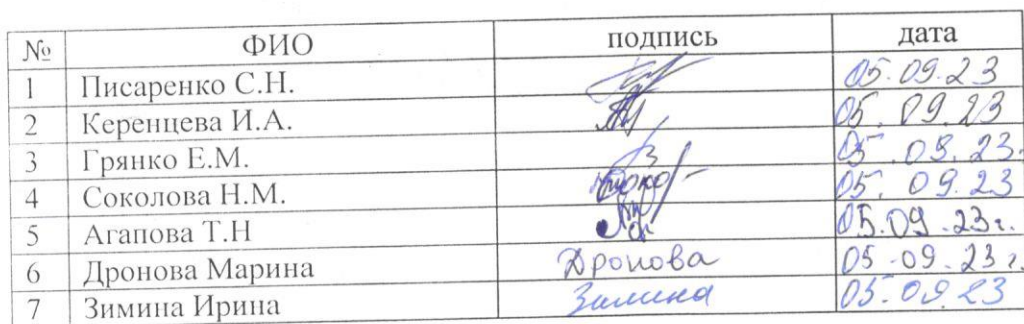 № ФИО подпись дата
1 Писаренко С.Н. 05.09.23
2 Керенцева И.А. 05.09.23
3 Грянко Е.М. 05.09.23.
4 Соколова Н.М. 05.09.23
5 Агапова Т.Н 05.09.23г.
6 Дронова Марина Дронова 05.09.23г.
7 Зимина Ирина Зимина 05.09.23